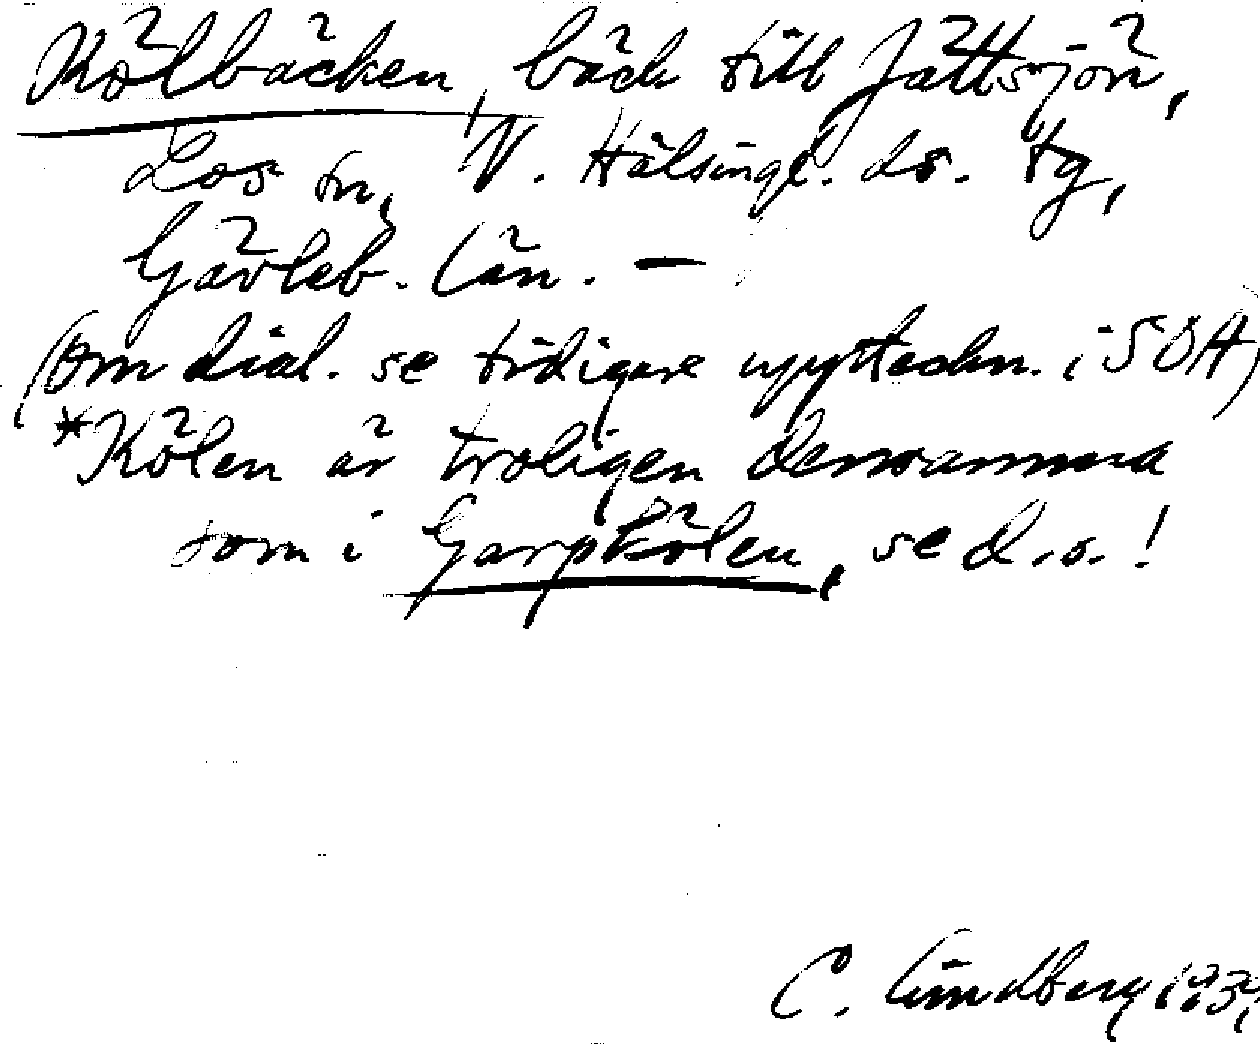 Kölbäcken, bäck till Jättsjön,
Los sn, V. Hälsingl. ds. tg,
Gävleb. län. —
(om dial. se tidigare uppteckn. i SOA)
*Kölen är troligen densamma
som i Garpkölen, se d. o.!
C. Lindberg